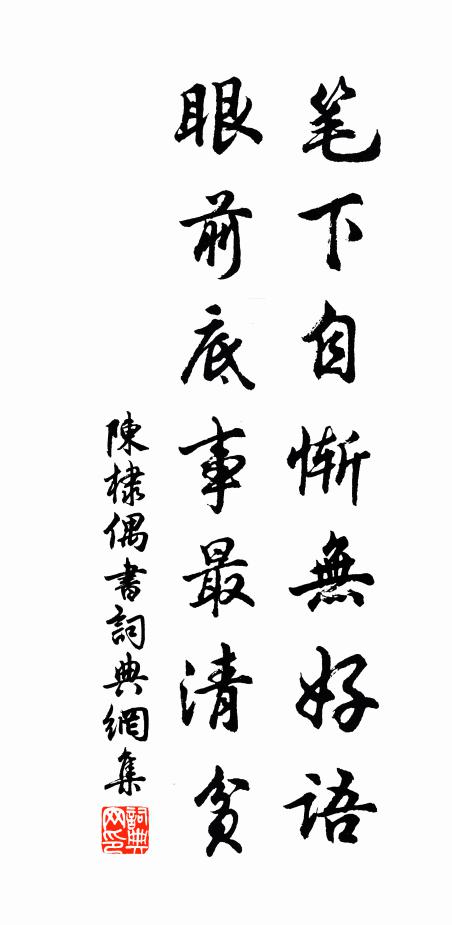 笔下自惭無好語
眼前底事最清貧
陳棣偶書詞典網集
詞典网印